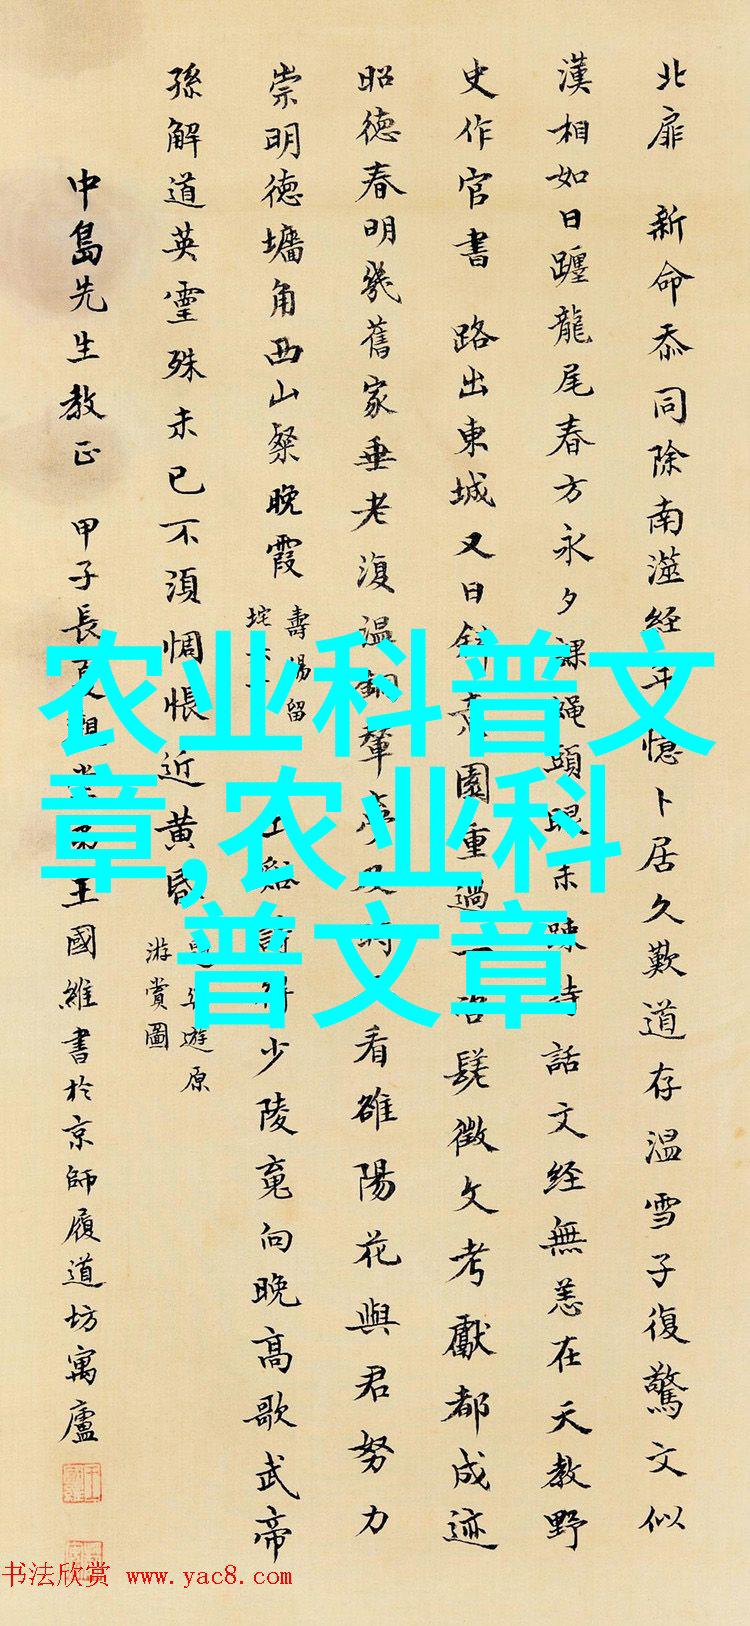 北扉 新命忝同除南澨經年憶卜居久歎道存温雪子復驚文似
漢相如日躔龍尾春方永夕課蠅頭眼未疎待話文經無恙在天教野
史作官書 路出東城又日斜 園重過 髦徵文考獻都成迹
昭德春明幾舊家垂老復温銅輦 看雒陽花與君努力
崇明德墉角西山粲晚霞
壽陽留
少陵竟向晚高歌武帝
孫解道英靈殊未已不須惆悵近黄昏
遊原
游賞圖
中島先生教正 甲子長夏 王國維書於京師履道坊寓廬
农业科普文
章,农业科
普文章
书法欣赏 www.yac8.com